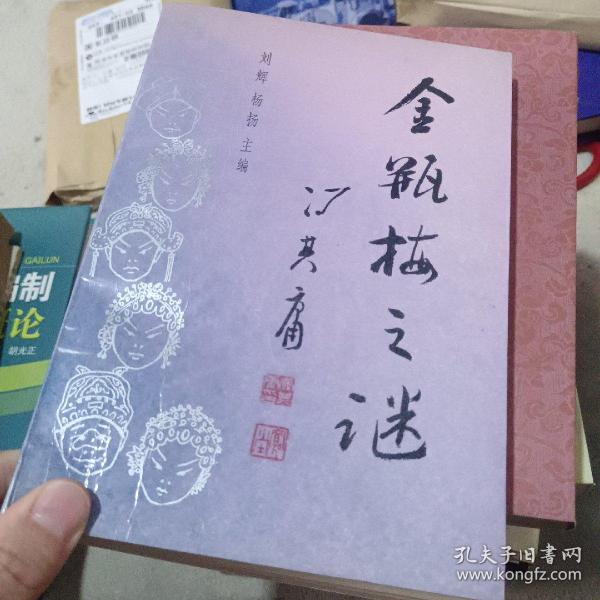 金瓶梅之谜
冯其庸
刘辉 杨扬 主编
GAILUN
编制
概论
胡光正
孔夫子旧书网
www.kongfz.com